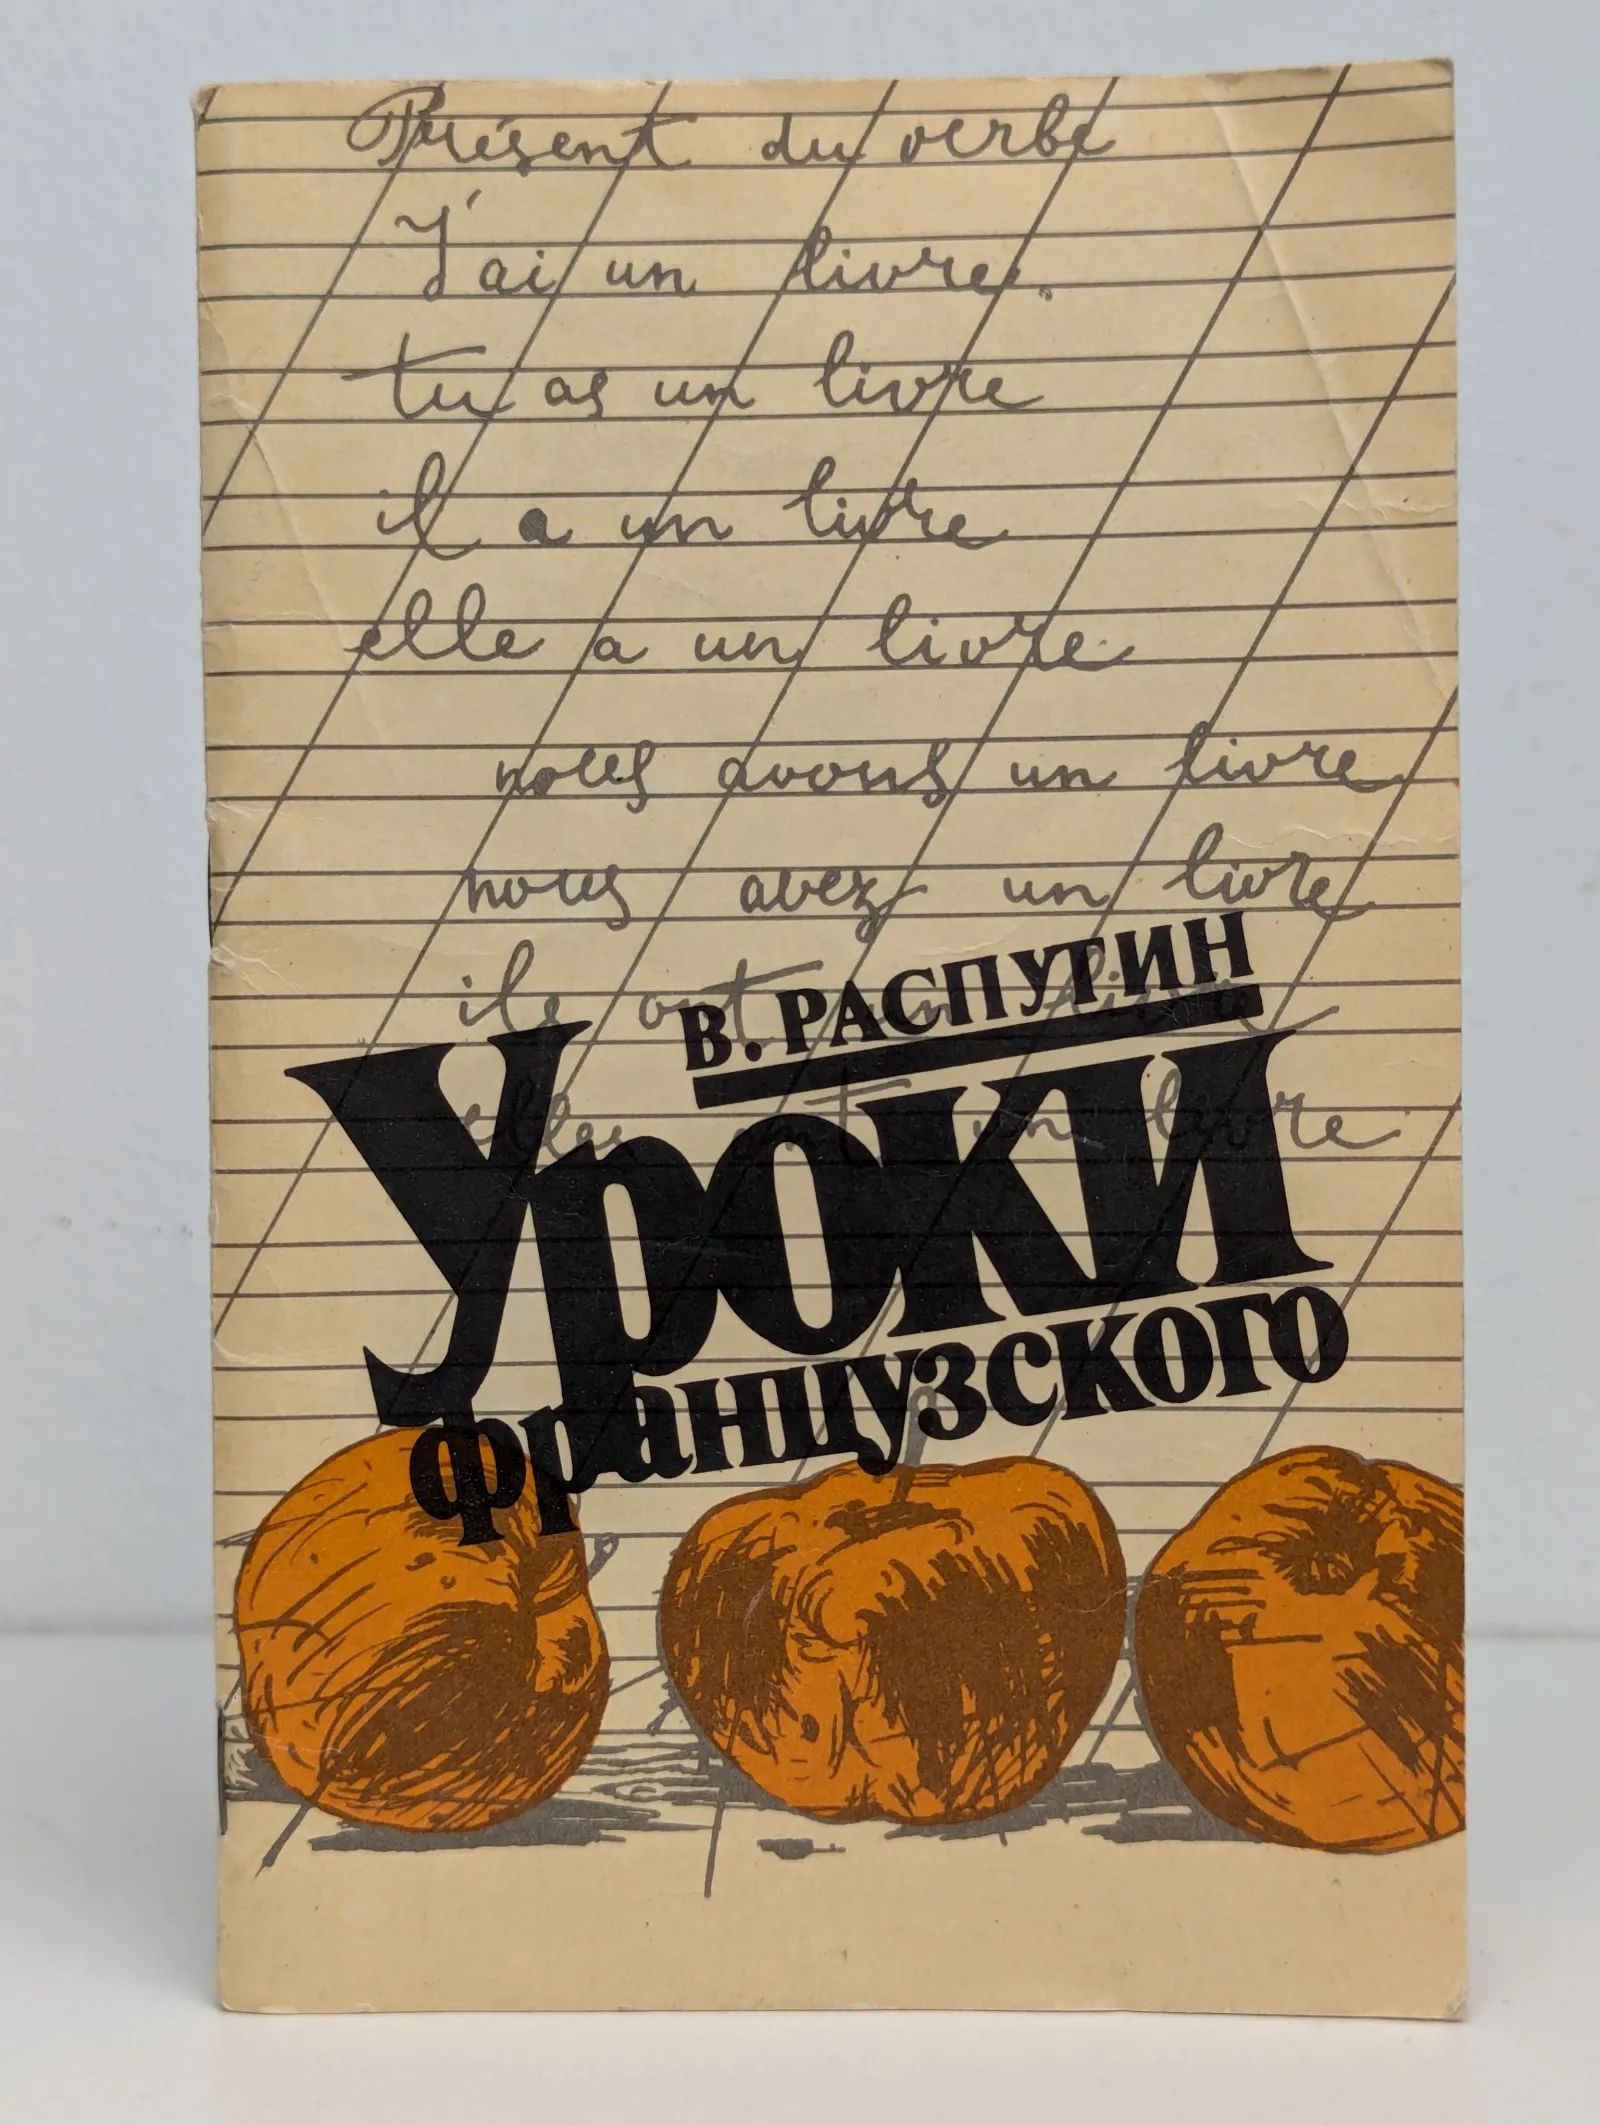 Présent du verbe
J'ai un livre.
tu as un livre
il a un livre
elle a un livre.
nous avons un livre
nous avez un livre
ils ont un livre
elles ont un livre.
В. РАСПУТИН
Уроки
французского